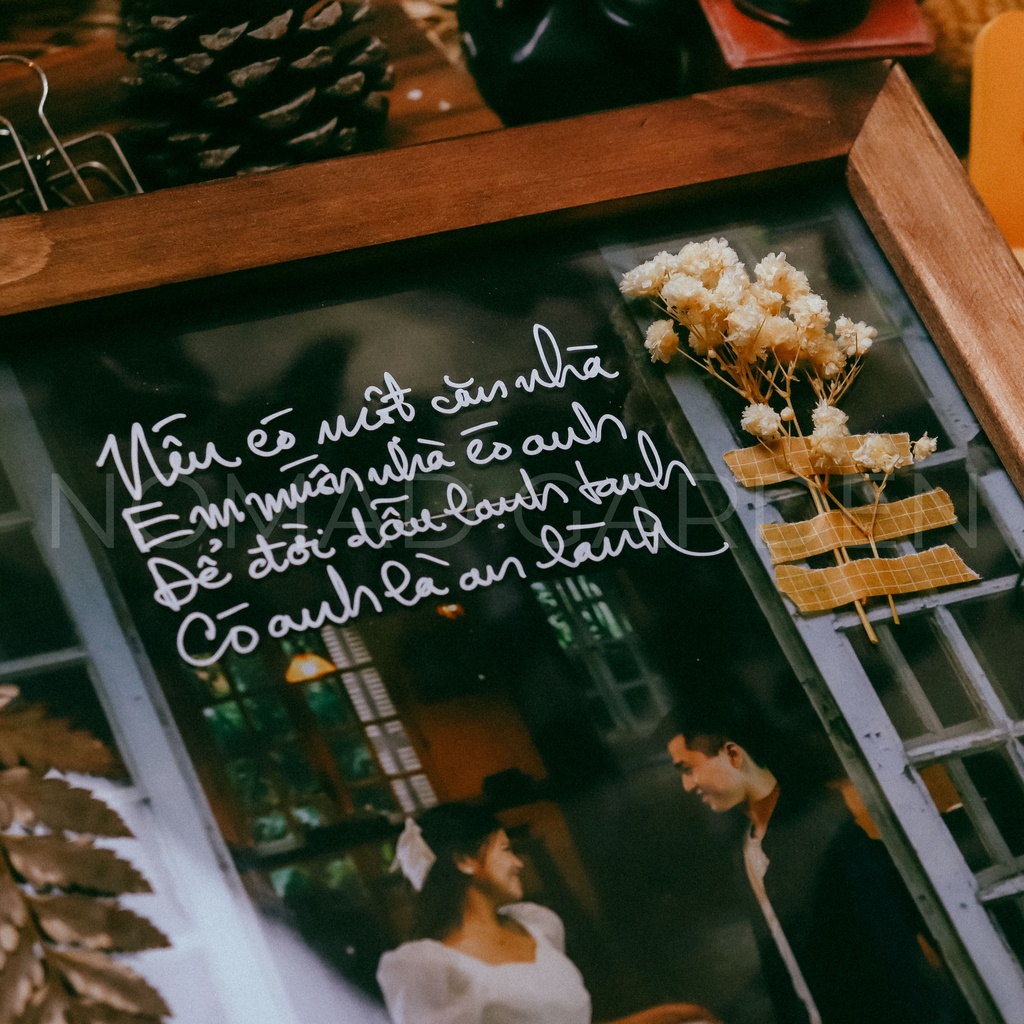 Nếu có một căn nhà
Em muốn nhà có anh
Để đời dẫu lạnh tanh
Có anh là an lành
NOMAD GARDEN